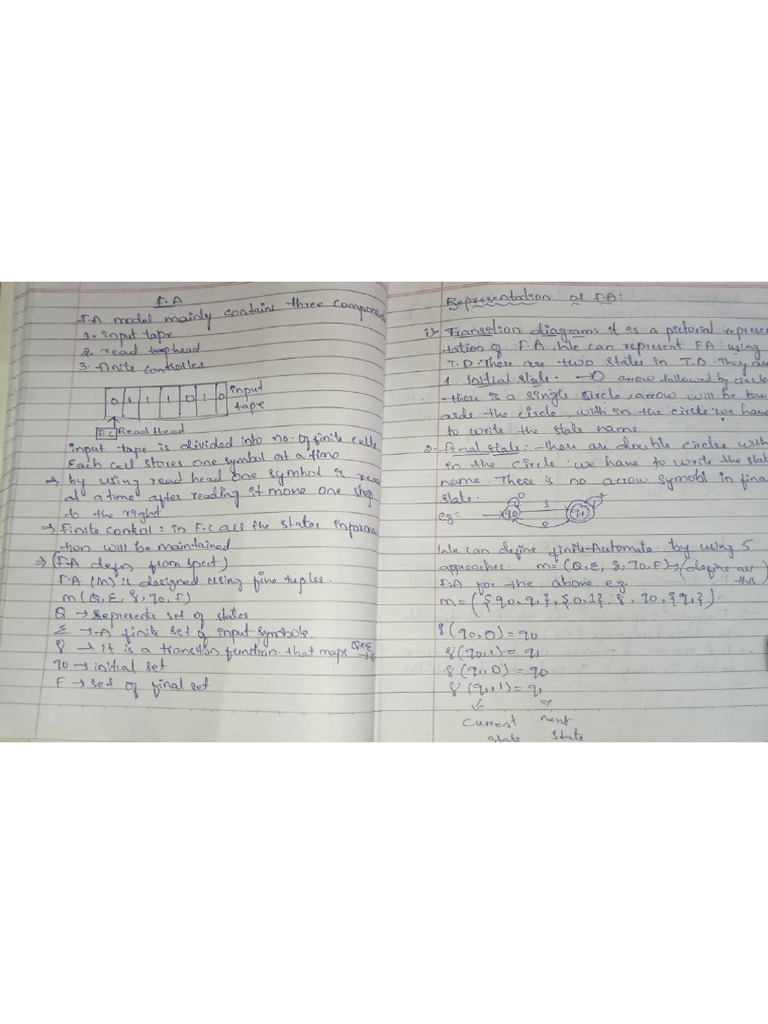 F.A
F.A model mainly contains three component
1. input tape
2. read head
3. finite controller
0 1 1 1 0 1 0 input
tape
F.C Read Head
input tape is divided into no. of finite cells
Each cell stores one symbol at a time
→ by using read head one symbol is
at a time after reading it move one step
to the right
→ finite control : in F.C all the states informa
tion will be maintained
→ (F.A defn from spect)
F.A (M) is designed using five tuples.
m (Q, Σ, δ, q0, F)
Q → represents set of states
Σ → A finite set of input symbols
δ → it is a transition function that maps Q×Σ → Q
q0 → initial set
F → set of final set
Representation of F.A:
i) Transition diagram: it is a pictorial represen
tation of F.A. We can represent FA using
T.D. There are two states in T.D. They are
1. Initial state: →O arrow followed by circle
there is a single circle, arrow will be tow
ards the circle, with in the circle we have
to write the state name
2. Final state: there are double circles with
in the circle we have to write the stat
name. There is no arrow symbol in fina
state.
eg: q0 0 1 q1 0 1
We can define finite-Automata by using 5
approaches. m = (Q, Σ, δ, q0, F) → (define all
this)
F.A for the above eg.
m = ({q0, q1}, {0,1}, δ, q0, {q1})
δ(q0, 0) = q0
δ(q0, 1) = q1
δ(q1, 0) = q0
δ(q1, 1) = q1
current next
state state